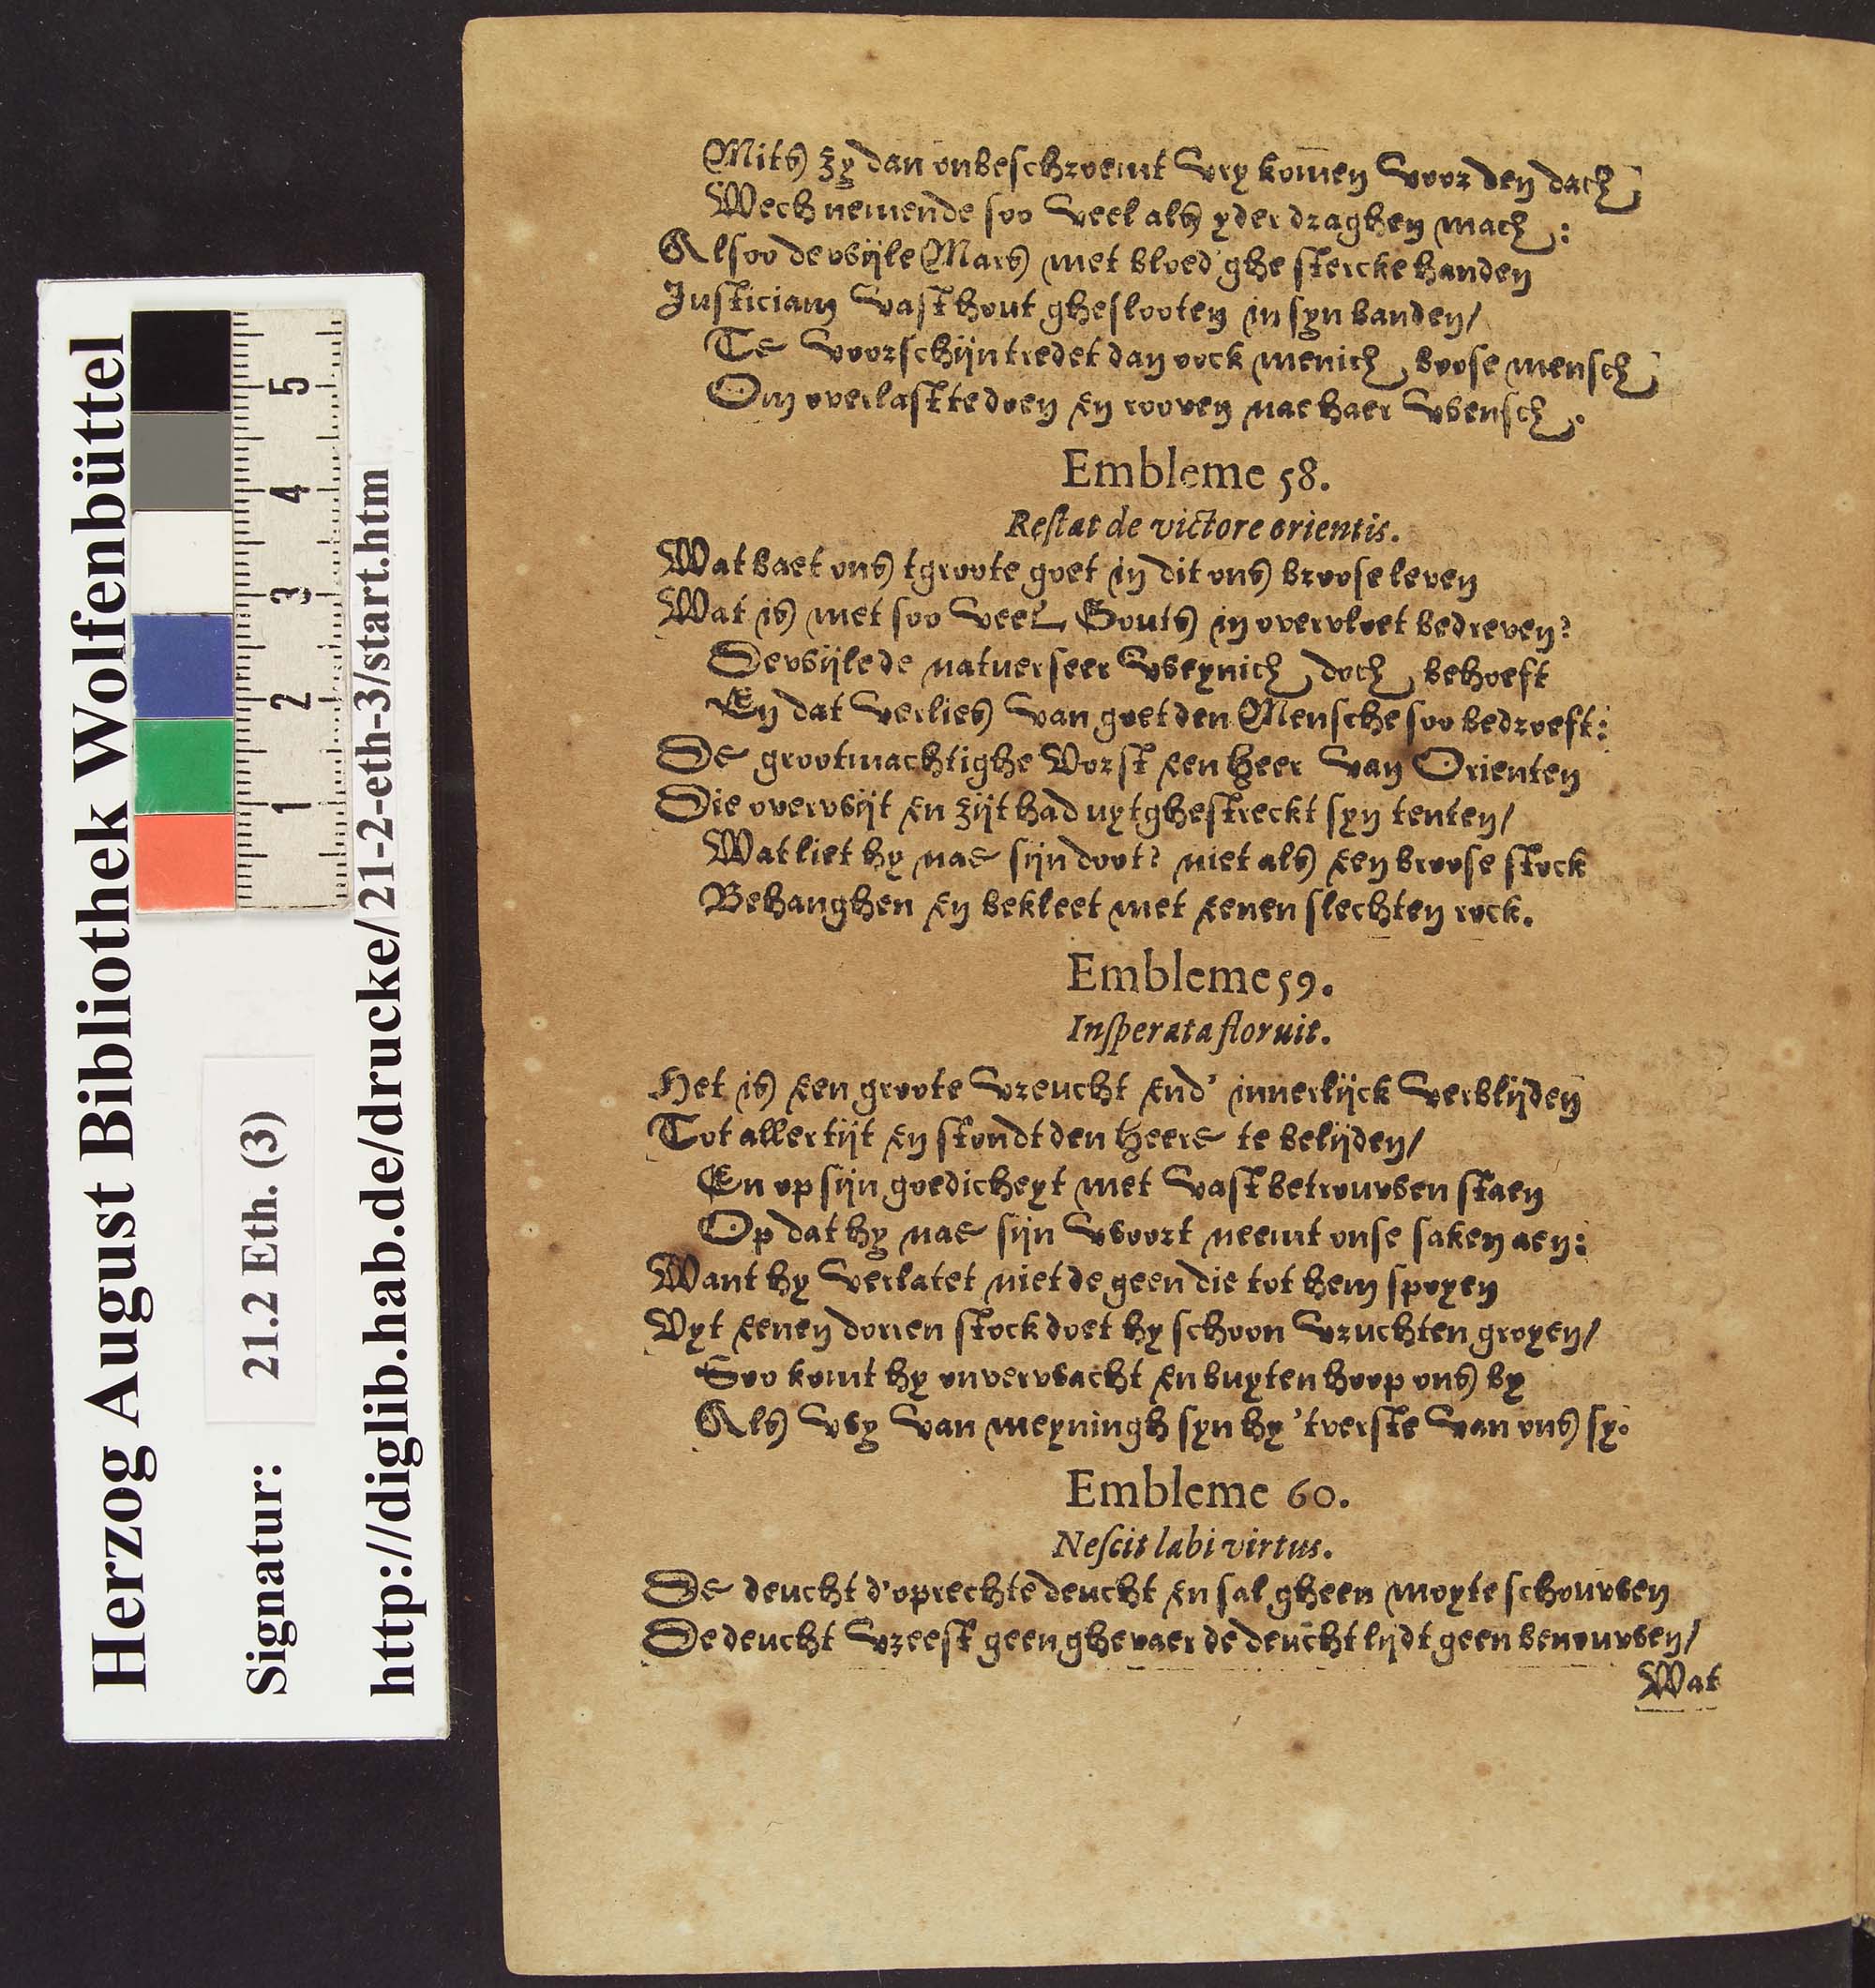 Herzog August Bibliothek Wolfenbüttel
Signatur: 21.2 Eth. (3)
http://diglib.hab.de/drucke/21-2-eth-3/start.htm
1 2 3 4 5
Mits zy dan onbeschroemt vry komen voor den dach
Wech nemende soo veel als yder draghen mach:
Alsoo de wijle Mars met bloed'ghe stercke handen
Justiciam vast hout gheslooten in syn banden/
Te voorschijn tredet dan oock menich boose mensch
Om overlast te doen en rooven nae haer wensch.
Embleme 58.
Restat de victore orientis.
Wat baet ons tgroote goet in dit ons broose leven
Wat is met soo veel Gouts in overvloet bedreven?
Dewijle de natuer seer weynich doch behoeft
En dat verlies van goet den Mensche soo bedroeft:
De grootmachtighe Vorst een heer van Orienten
Die overwijt en zijt had uytghestreckt syn tenten/
Wat liet hy nae sijn doot? niet als een broose stock
Behanghen en bekleet met eenen slechten rock.
Embleme 59.
Insperata floruit.
Het is een groote vreucht end' innerlijck verblijden
Tot aller tijt en stondt den heere te belijden/
En op sijn goedicheyt met vast betrouwen staen
Op dat hy nae sijn woort neemt onse saken aen:
Want hy verlatet niet de geen die tot hem spoyen
Vyt eenen dorren stock doet hy schoon vruchten groyen/
Soo komt hy onverwacht en buyten hoop ons by
Als wy van meyningh syn hy 'tverste van ons sy.
Embleme 60.
Nescit labi virtus.
De deucht d'oprechte deucht en sal gheen moyte schouwen
De deucht vreest geen ghevaer de deucht lijdt geen benouwen/
Wat